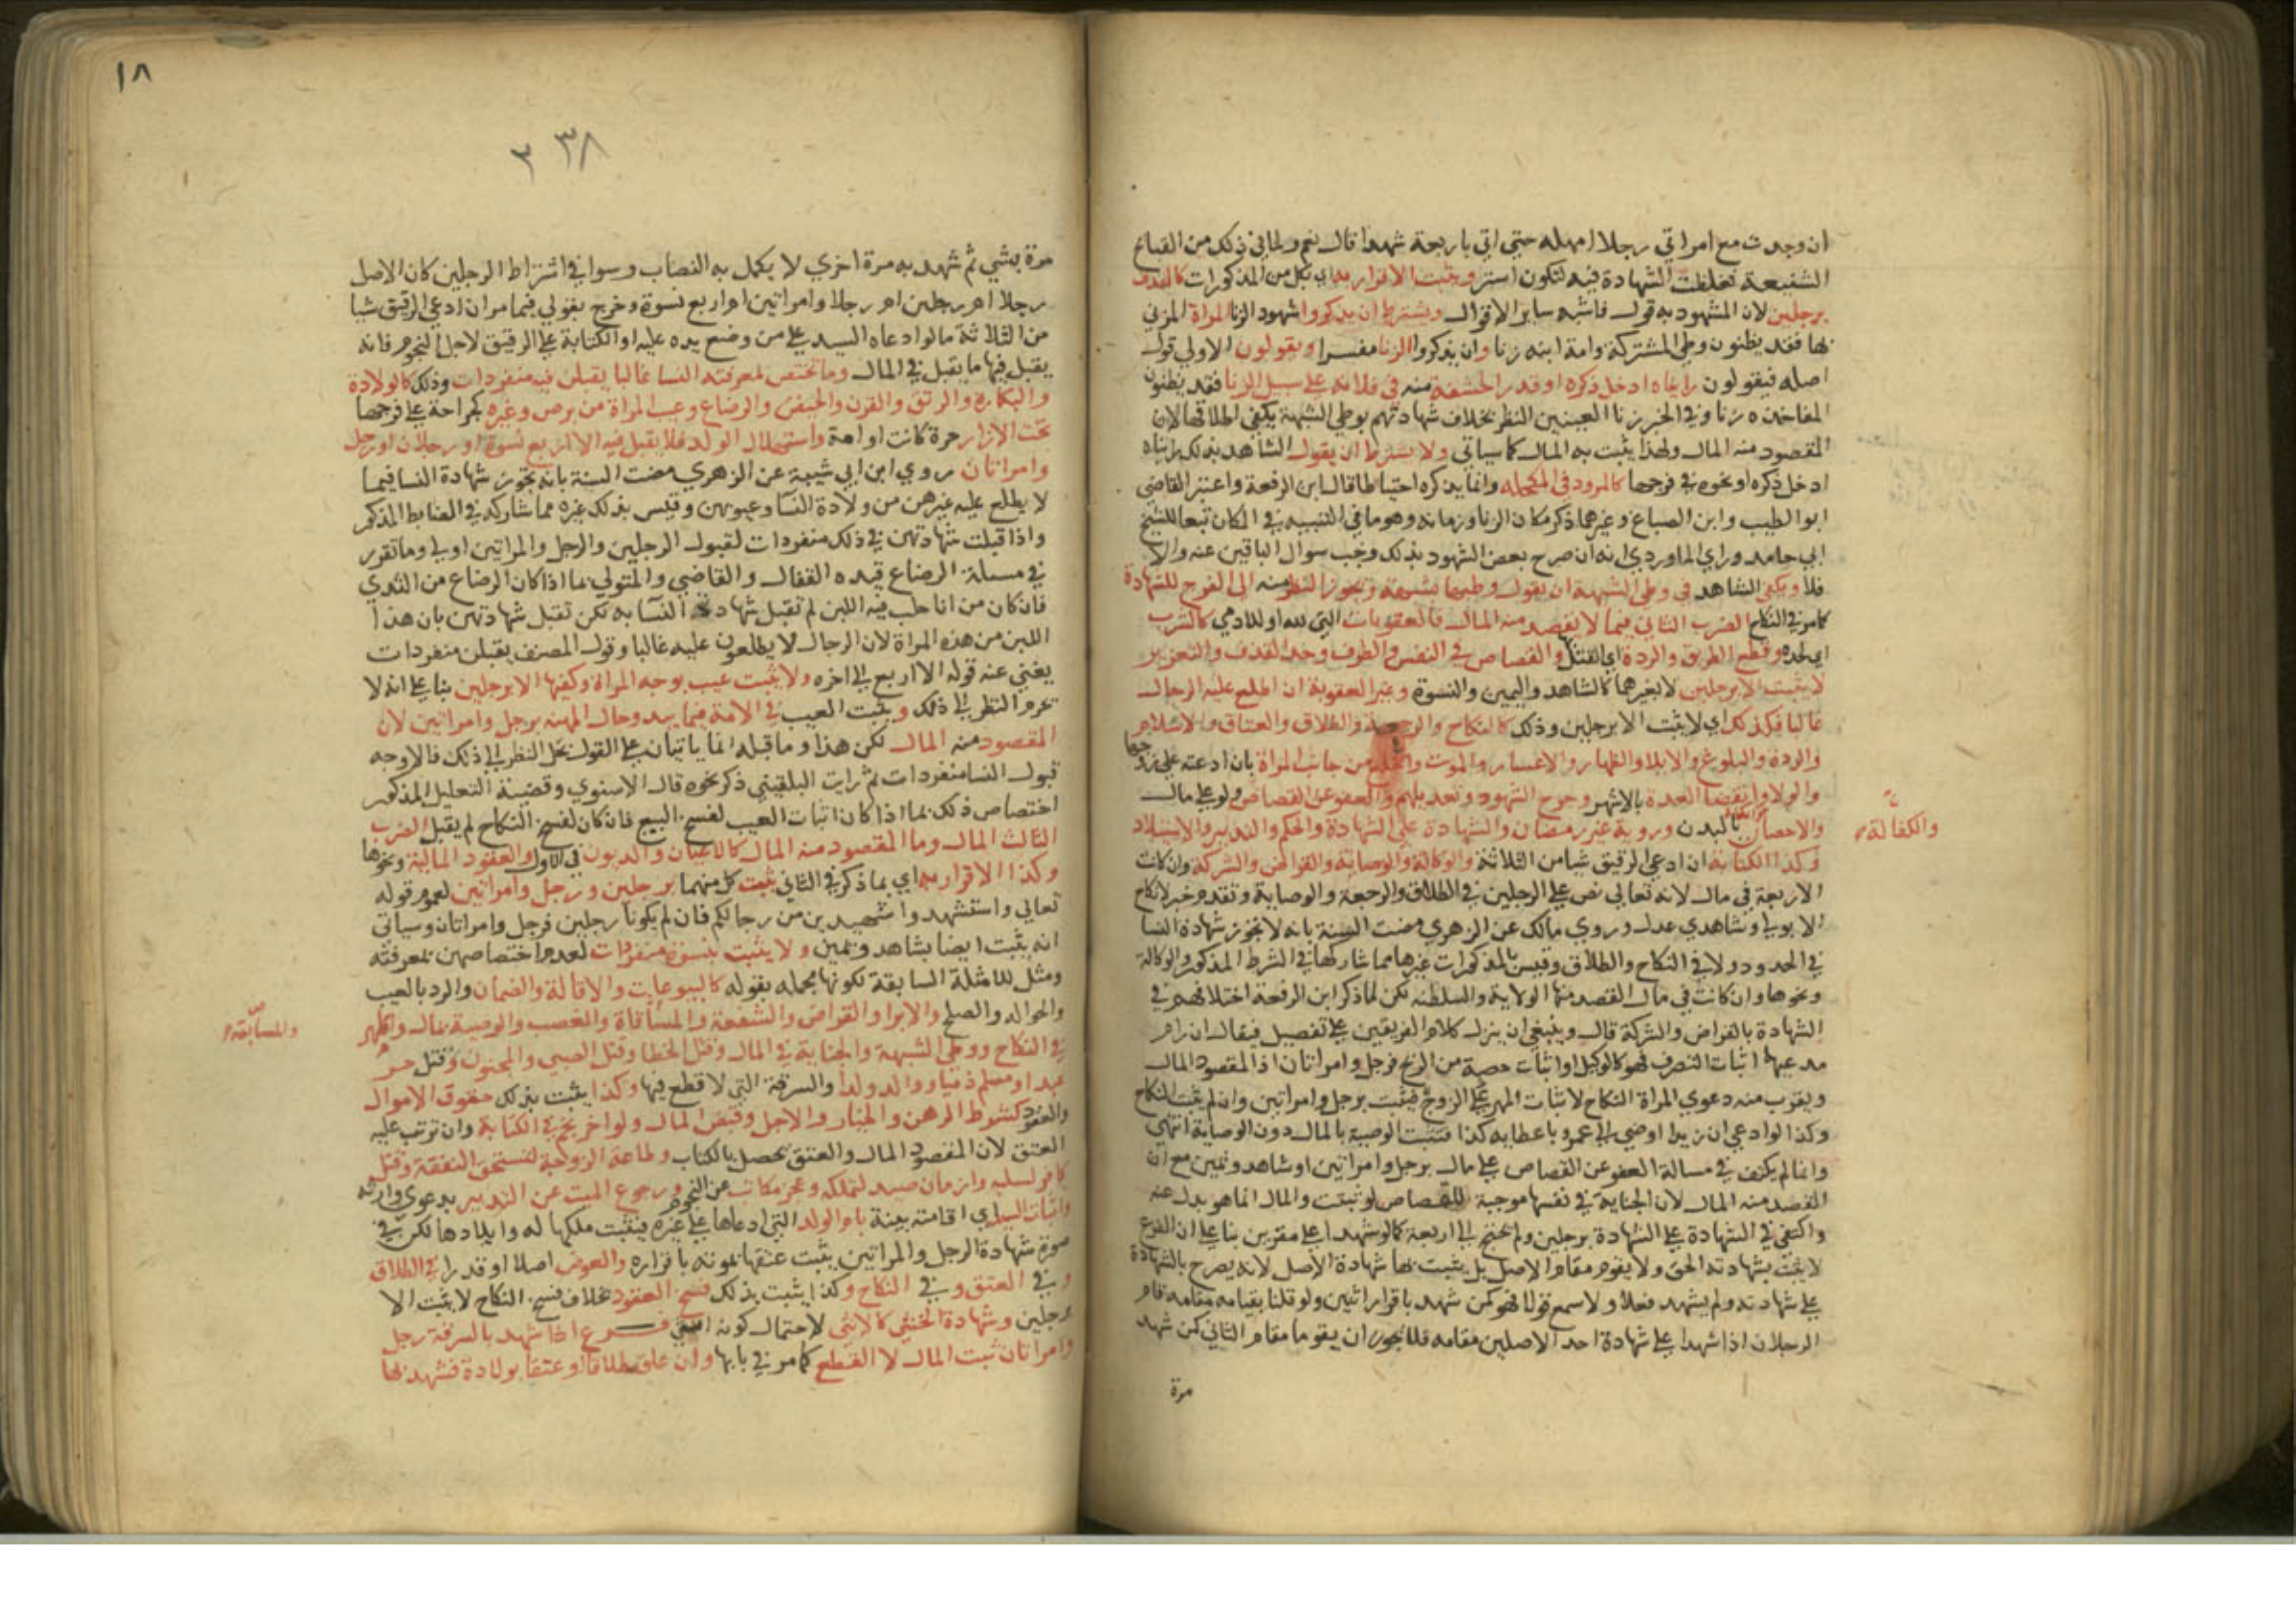 ان وجدت مع امراتي رجلا امهله حتى اتي باربعة شهدا قال نعم ولما في ذلك من القبائح
الشنيعة فغلظت الشهادة فيه لتكون استر ويثبت الاقرار به اي بكل من المذكورات كالقذف
برجلين لان المشهود به قول فاشبه ساير الاقوال ويشترط ان يذكروا شهود الزنا المراة المزني
بها فقد يظنون وطي المشتركة وامة ابنه زنا وان يذكروا الزنا مفسرا ويقولون الاولي قول
اصله فيقولون رايناه ادخل ذكره او قدر الحشفة منه في فلانة على سبيل الزنا فقد يظنون
المفاخذه زنا وفي الخبر زنا العينين النظر بخلاف شهادتهم بوطي الشبهة يكفي اطلاقها لان
المقصود منه المال ولهذا يثبت به المال كما سياتي ولا يشترط ان يقول الشاهد بذلك رايناه
ادخل ذكره او نحوه في فرجها كالمرود في المكحله وانما يذكره احتياطا قال ابن الرفعة واعتبر القاضي
ابو الطيب وابن الصباغ وغيرها ذكر مكان الزنا وزمانه وهو ما في التنبيه في المكان تبعا للشيخ
ابي حامد وراي الماوردي انه ان صرح بعض الشهود بذلك وجب سوال الباقين عنه والا
فلا ويكفي الشاهد في وطي الشبهة ان يقول وطيها بشبهة ويجوز النظر منه الى الفرج للشهادة
كما مر في النكاح الضرب الثاني فيما لا يقصد منه المال فالعقوبات التي لله او للادمي كالشرب
اي لحده وقطع الطريق والردة اي القتل والقصاص في النفس والطرف وحد القذف والتعزير
لا يثبت الا برجلين لا بغيرهما كالشاهد واليمين والنسوة وغير العقوبة ان اطلع عليه الرجال
غالبا فكذلك اي لا يثبت الا برجلين وذلك كالنكاح والرجعة والطلاق والعتاق والاسلام
والردة والبلوغ والايلا والظهار والاعسار والموت والخلع من جانب المراة بان ادعته على زوجها
والولا وانقضا العدة بالاشهر وجرح الشهود وتعديلهم والعفو عن القصاص ولو على مال
والاحصان بالبدن وروية غير رمضان والشهادة على الشهادة والحكم والتدبير والاستيلاد
والكفالة
وكذا الكتابة ان ادعى الرقيق شيا من الثلاثة والوكالة والوصاية والقراض والشركة وان كانت
الاربعة في مال لانه تعالى نص على الرجلين في الطلاق والرجعة والوصاية وتقدم خبر لا نكاح
الا بولي وشاهدي عدل وروي مالك عن الزهري مضت السنة بانه لا تجوز شهادة النسا
في الحدود ولا في النكاح والطلاق وقيس بالمذكورات غيرها مما شاركها في الشرط المذكور والوكالة
ونحوها وان كانت في مال القصد منها الولاية والسلطنه لكن لما ذكر ابن الرفعة اختلافهم في
الشهادة بالقراض والشركة قال وينبغي ان ينزل كلام الفريقين على تفصيل فيقال ان رام
مدعيهما اثبات التصرف فهو كالوكيل او اثبات حصة من الربح فرجل وامراتان اذ المقصود المال
ويقرب منه دعوي المراة النكاح لاثبات المهر على الزوج فيثبت برجل وامراتين وان لم يثبت النكاح
وكذا لو ادعى ان زيدا اوصى الى عمرو باعطايه كذا فتثبت الوصية بالمال دون الوصاية انتهى
وانما لم يكتف في مسالة العفو عن القصاص على مال برجل وامراتين او شاهد ويمين مع ان
القصد منه المال لان الجناية في نفسها موجبة للقصاص لو ثبتت والمال انما هو بدل عنه
واكتفي في الشهادة على الشهادة برجلين ولم يحتج الى اربعة كما لو شهدا على مقرين بنا على ان الفرع
لا يثبت بشهادته الحق ولا يقوم مقام الاصل بل يثبت بها شهادة الاصل لانه يصرح بالشهادة
على شهادته ولم يشهد فعلا ولا سمع قولا فهو كمن شهد باقرار اثنين ولو قلنا بقيامه مقامه قام
الرجلان اذا شهدا على شهادة احد الاصلين مقامه فلا يجوز ان يقوما مقام الثاني كمن شهد
مرة
١٨
٣٣٨
مرة بشي ثم شهد به مرة اخري لا يكمل به النصاب وسوا في اشتراط الرجلين كان الاصل
رجلا ام رجلين ام رجلا وامراتين ام اربع نسوة وخرج بقولي فيما مر ان ادعى الرقيق شيا
من الثلاثة ما لو ادعاه السيد على من وضع يده عليه او الكتابة على الرقيق لاجل النجوم فانه
يقبل فيها ما يقبل في المال وما تختص لمعرفته النسا غالبا يقبلن فيه منفردات وذلك كالولادة
والبكارة والرتق والقرن والحيض والرضاع وعيب المراة من برص وغيره كجراحة على فرجها
تحت الازار حرة كانت او امة واستهلال الولد فلا يقبل فيه الا اربع نسوة او رجلان او رجل
وامراتان روي ابن ابي شيبة عن الزهري مضت السنة بانه تجوز شهادة النسا فيما
لا يطلع عليه غيرهن من ولادة النسا وعيوبهن وقيس بذلك غيره مما شاركه في الضابط المذكور
واذا قبلت شهادتهن في ذلك منفردات لقبول الرجلين والرجل والمراتين اولي وما تقرر
في مسيلة الرضاع قيده القفال والقاضي والمتولي بما اذا كان الرضاع من الثدي
فان كان من انا حلب فيه اللبن لم تقبل شهادة النسا به لكن تقبل شهادتهن بان هذا
اللبن من هذه المراة لان الرجال لا يطلعون عليه غالبا وقول المصنف يقبلن منفردات
يغني عنه قوله الا اربع الى اخره ولا يثبت عيب بوجه المراة وكفيها الا برجلين بنا على انه لا
يحرم النظر الى ذلك ويثبت العيب في الامة فيما يبدو حال المهنه برجل وامراتين لان
المقصود منه المال لكن هذا وما قبله انما ياتيان على القول بحل النظر الى ذلك فالاوجه
قبول النسا منفردات ثم رايت البلقيني ذكر نحوه قال الاسنوي وقضية التعليل المذكور
اختصاص ذلك بما اذا كان اثبات العيب لفسخ البيع فان كان لفسخ النكاح لم يقبل الضرب
الثالث المال وما المقصود منه المال كالاعيان والديون في الاول والعقود المالية ونحوها
وكذا الاقرار به اي بما ذكر في الثاني يثبت كل منهما برجلين ورجل وامراتين لعموم قوله
تعالى واستشهدوا شهيدين من رجالكم فان لم يكونا رجلين فرجل وامراتان وسياتي
انه يثبت ايضا بشاهد ويمين ولا يثبت بنسوة منفردات لعدم اختصاصهن بمعرفته
ومثل للامثلة السابقة لكونها مجمله بقوله كالبيوعات والاقالة والضمان والرد بالعيب
والحواله والصلح والابرا والقراض والشفعة والمساقاة والغصب والوصية بمال والمهر
والمسابقة
في النكاح ووطي الشبهة والجناية في المال وقتل الخطا وقتل الصبي والمجنون وقتل حر
عبدا ومسلم ذميا ووالد ولدا والسرقة التي لا قطع فيها وكذا يثبت بذلك حقوق الاموال
والعقود كشرط الرهن والخيار والاجل وقبض المال ولو اخر نجم في الكتابة وان ترتب عليه
العتق لان المقصود المال والعتق يحصل بالكتاب وطاعة الزوجة لتستحق النفقة وقتل
كافر لسلبه وازمان صيد لتملكه وعجز مكاتب عن النجوم ورجوع الميت عن التدبير بدعوي وارثه
واثبات السيد اي اقامته بينة بام الولد التي ادعاها على غيره فيثبت ملكها له وايلادها لكن في
صورة شهادة الرجل والمراتين يثبت عتقها بموته باقراره والعوض اصلا او قدرا في الطلاق
وفي العتق وفي النكاح وكذا يثبت بذلك فسخ العقود بخلاف فسخ النكاح لا يثبت الا
برجلين وشهادة الخنثى كالانثى لاحتمال كونه انثى فرع اذا شهد بالسرقة رجل
وامراتان ثبت المال لا القطع كما مر في بابها وان علق طلاقا او عتقا بولادة فشهد بها